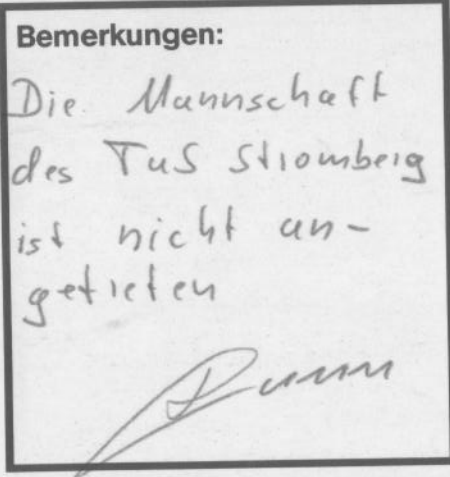 Bemerkungen:
Die Mannschaft
des TuS Stromberg
ist nicht an-
getreten